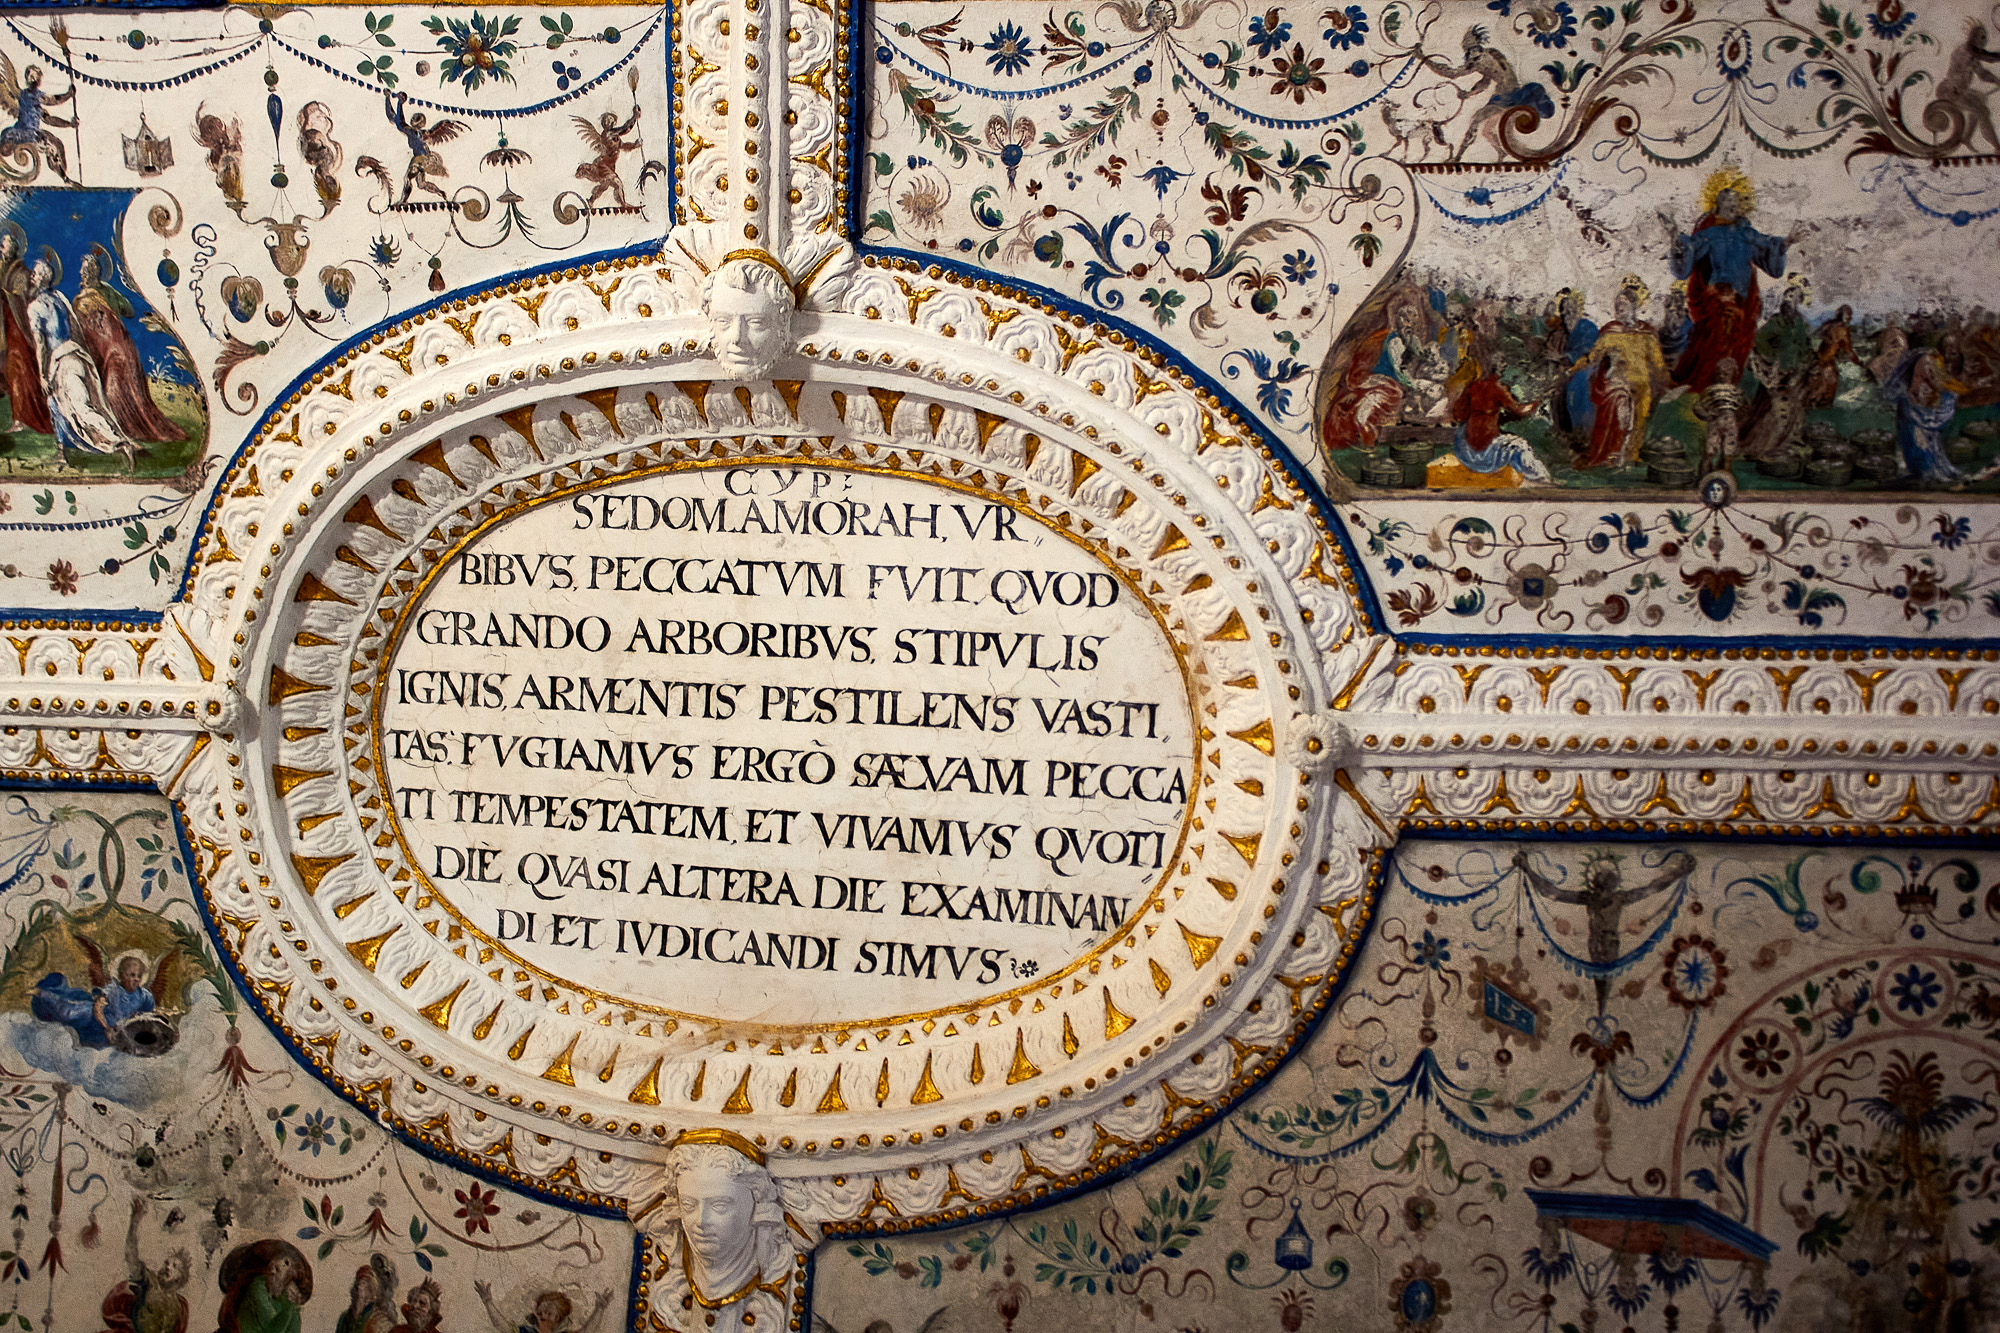 CYP:
SEDOM.AMORAH, VR„
BIBVS, PECCATVM FVIT, QVOD
GRANDO ARBORIBVS, STIPVLIS
IGNIS, ARMENTIS PESTILENS VASTI„
TAS: FVGIAMVS ERGÒ SÆVAM PECCA„
TI TEMPESTATEM, ET VIVAMVS QVOTI„
DIÈ QVASI ALTERA DIE EXAMINAN„
DI ET IVDICANDI SIMVS